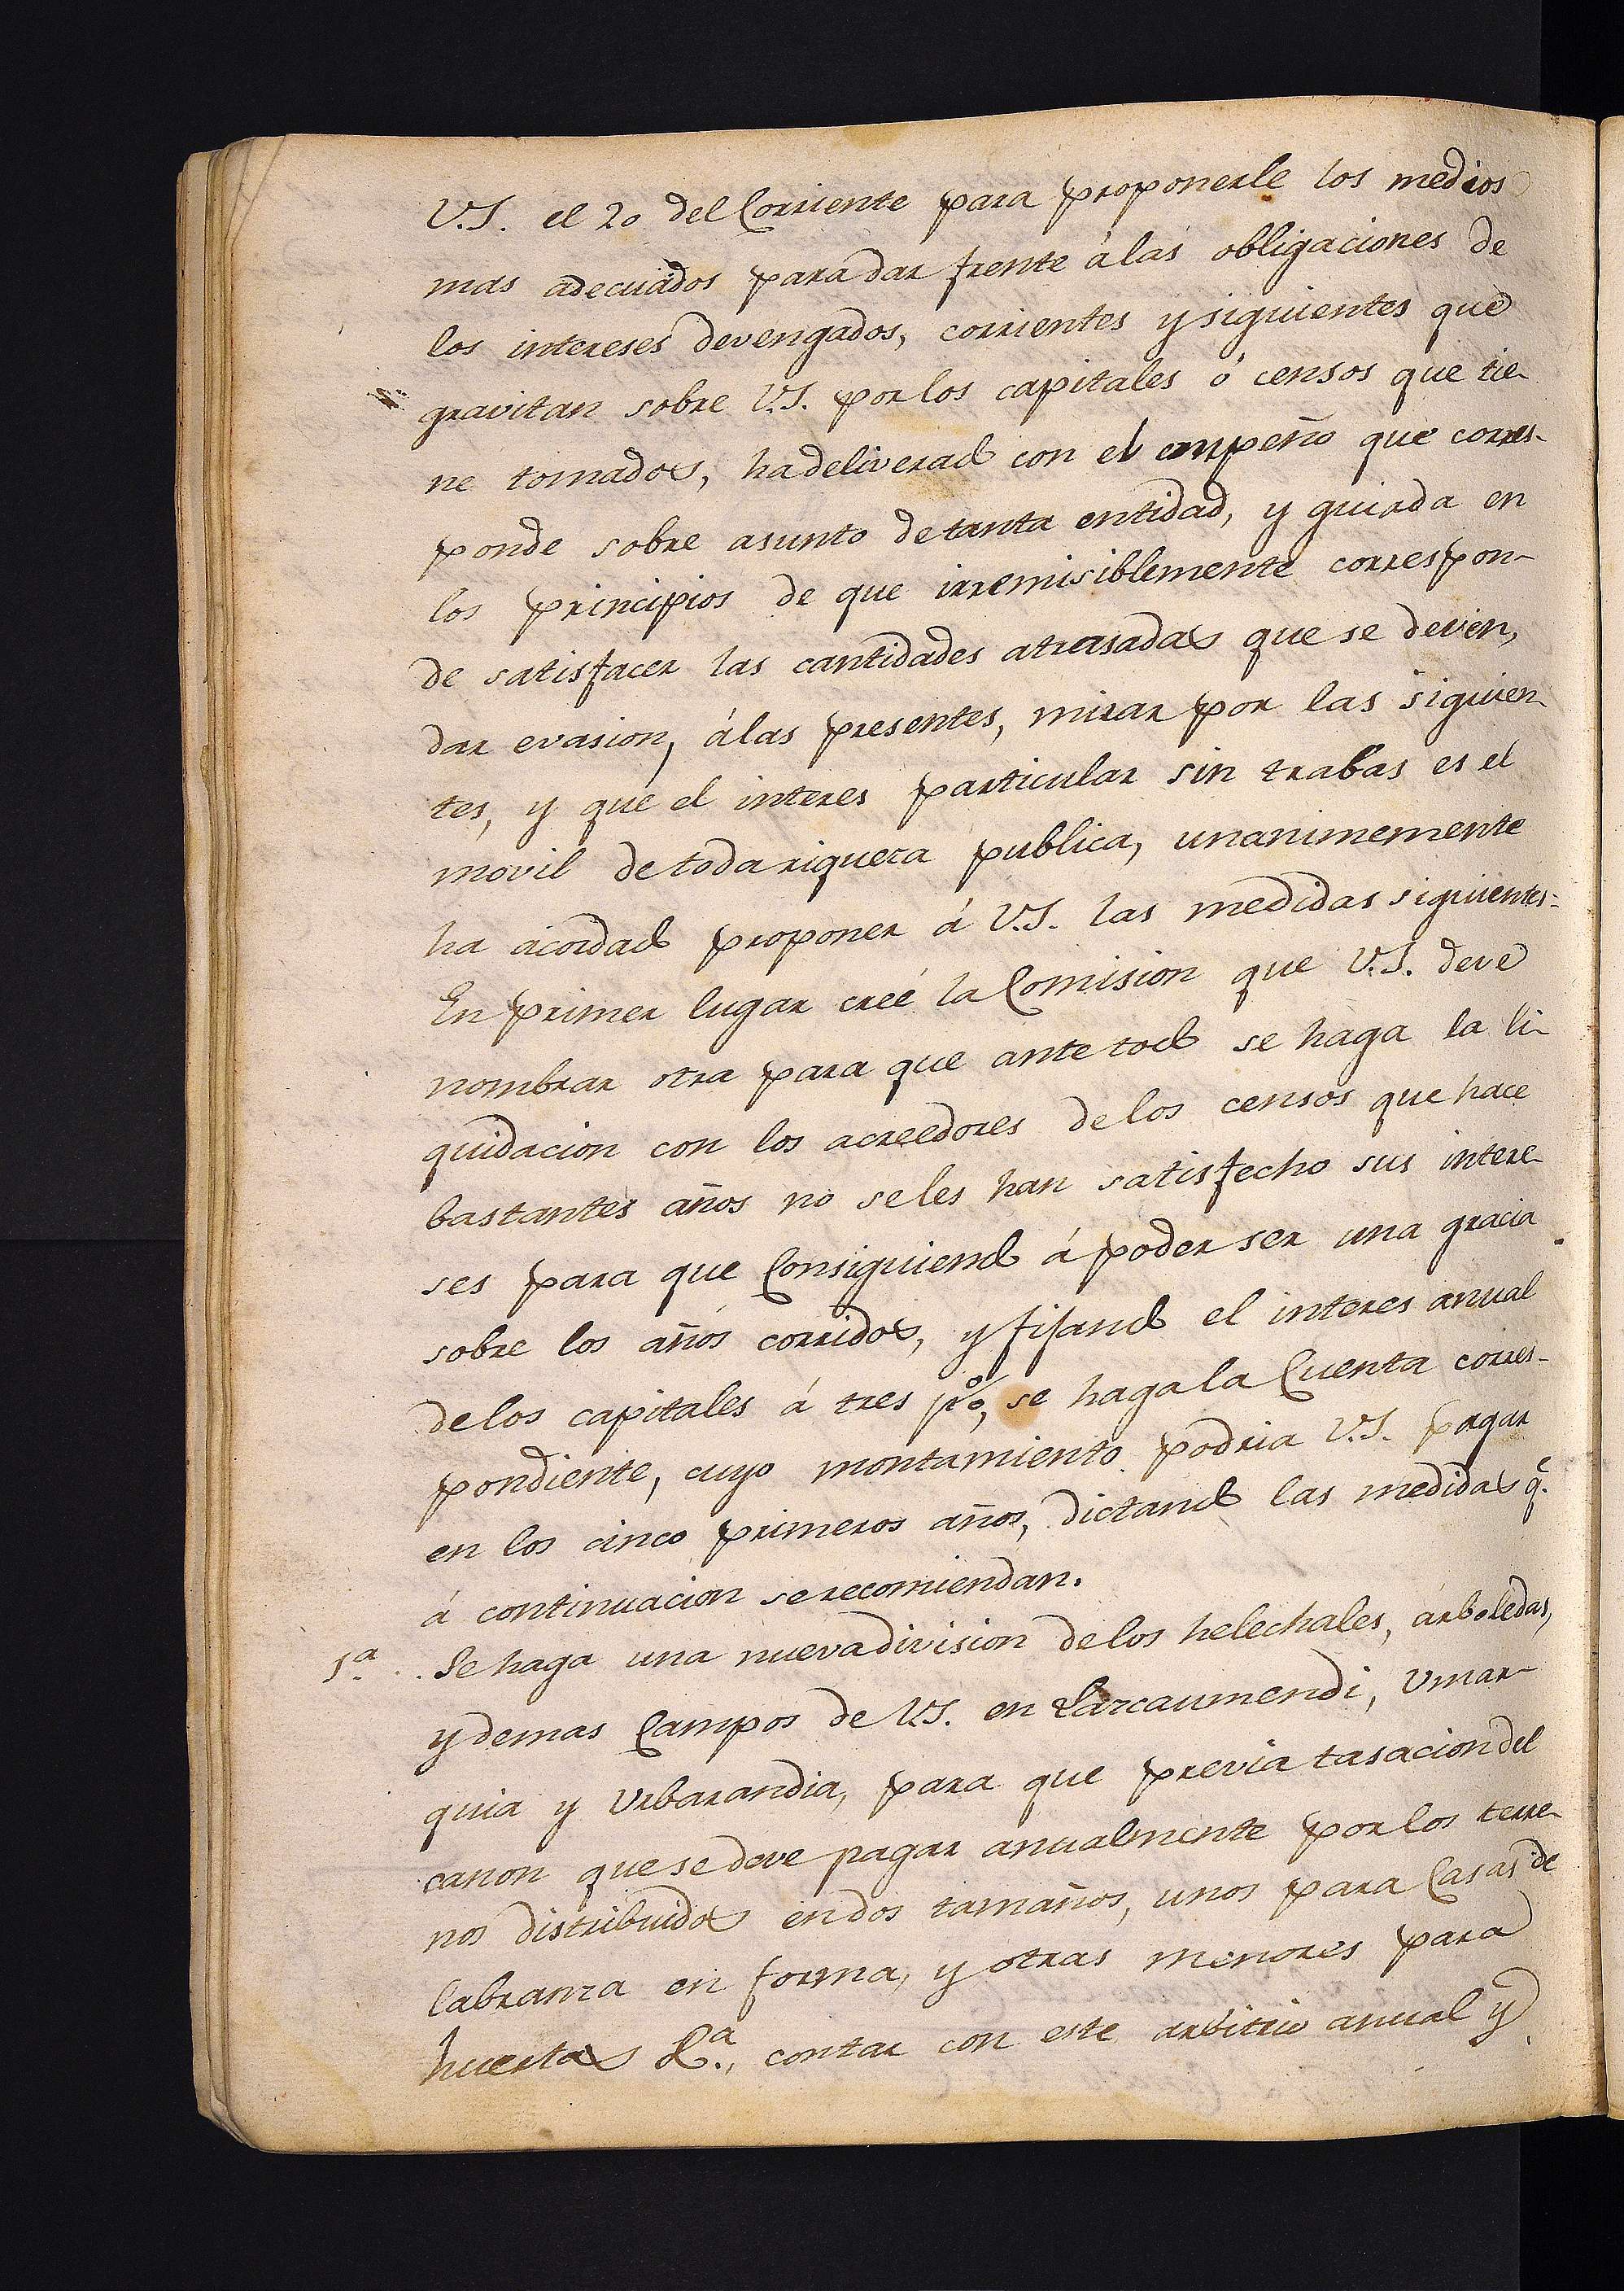 V.S. el 20 del Corriente para proponerle los medios
mas adecuados para dar frente á las obligaciones de
los intereses devengados, corrientes y siguientes que
gravitan sobre V.S. por los capitales ó censos que tie-
ne tomados, ha deliverado con el empeño que corres-
ponde sobre asunto de tanta entidad, y guiada en
los principios de que irremisiblemente correspon-
de satisfacer las cantidades atrasadas que se deven,
dar evasion, á las presentes, mirar por las siguien-
tes, y que el interes particular sin trabas es el
movil de toda riqueza publica, unanimemente
ha acordado proponer á V.S. las medidas siguientes=
En primer lugar creé la Comision que V.S. deve
nombrar otra para que ante todo se haga la li-
quidacion con los acreedores de los censos que hace
bastantes años no se les han satisfecho sus intere-
ses para que Consiguiendo á poder ser una gracia
sobre los años corridos, y fijando el interes anual
de los capitales á tres p%, se haga la Cuenta corres-
pondiente, cuyo montamiento podria V.S. pagar
en los cinco primeros años, dictando las medidas q.e
á continuacion se recomiendan.
1.a .. Se haga una nueva division de los helechales, árboledas,
y demas Campos de V.S. en Larcaumendi, Umar-
quia y Urbarandia, para que previa tasacion del
canon que se deve pagar anualmente por los terre-
nos distribuidos en dos tamaños, unos para Casas de
labranza en forma, y otras menores para
huertas &.a, contar con este arbitrio anual y